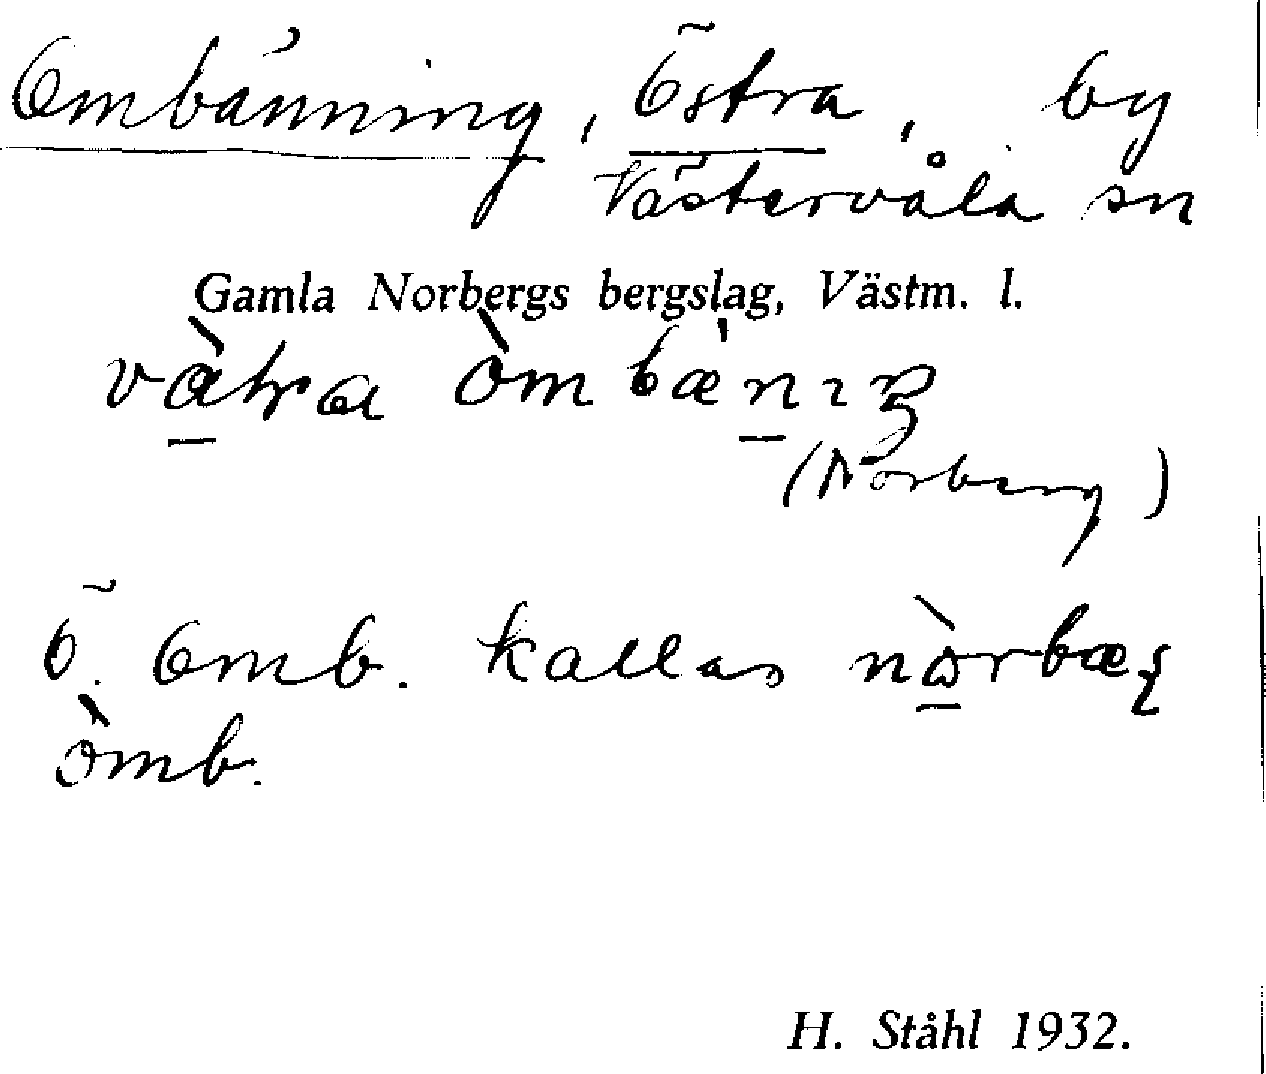 Ombänning, Östra, by
Västervåla sn
Gamla Norbergs bergslag, Västm. l.
òm bænıŋ
(Norberg)
Ö. Omb. kallas
òmb.
H. Ståhl 1932.